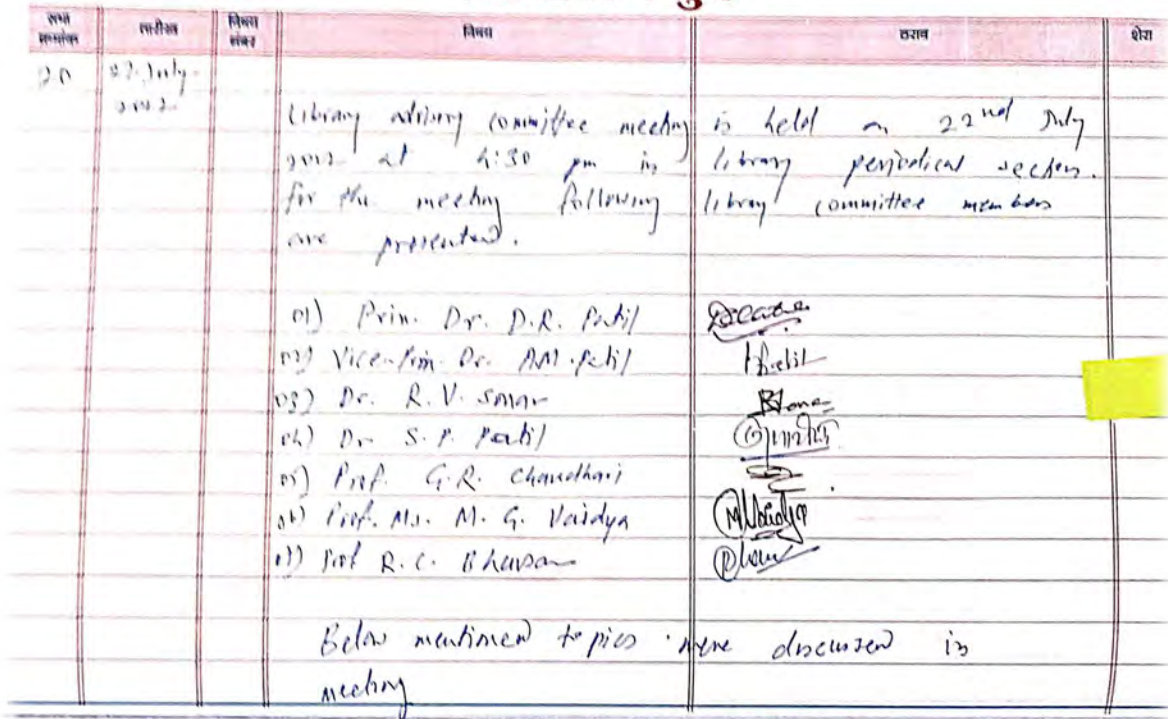 सभा क्रमांक तारीख विषय नंबर विषय ठराव शेरा
20 22 July
Library advisory committee meeting is held on 22nd July
at 4:30 pm in library periodical section.
for the meeting following library committee members
are presented.
01) Prin. Dr. D.R. Patil
02) Vice-Prin. Dr. A.M. Patil Patil
03) Dr. R. V.
04) Dr S. P. Patil
05) Prof. G.R. Chaudhari
06) Prof. Ms. M. G. Vaidya MVaidya
07) Prof R. C. Bhavsar
Below mentioned topics were discussed in
meeting